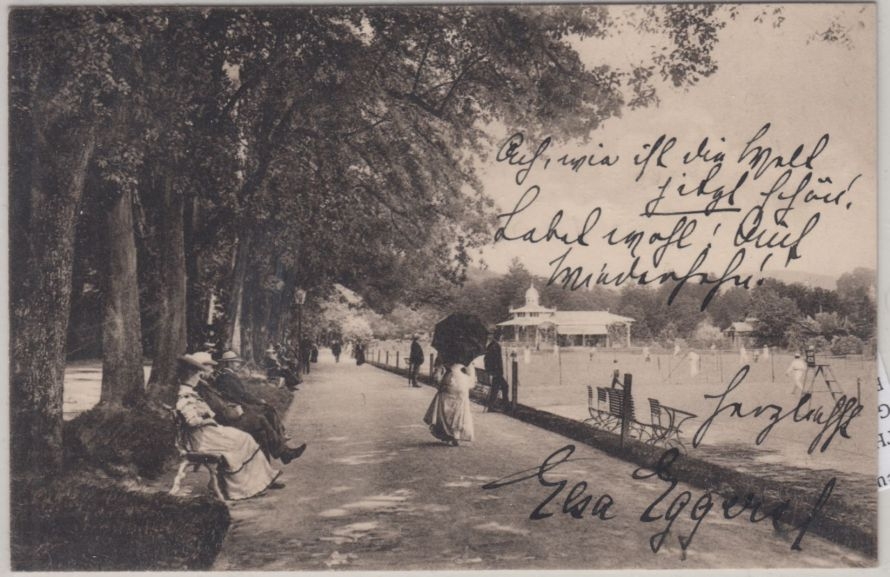 Ach, wie ist die Welt
jetzt schön!
Lebet wohl! Auf
Wiedersehn!
Herzlichst
Elsa Eggers